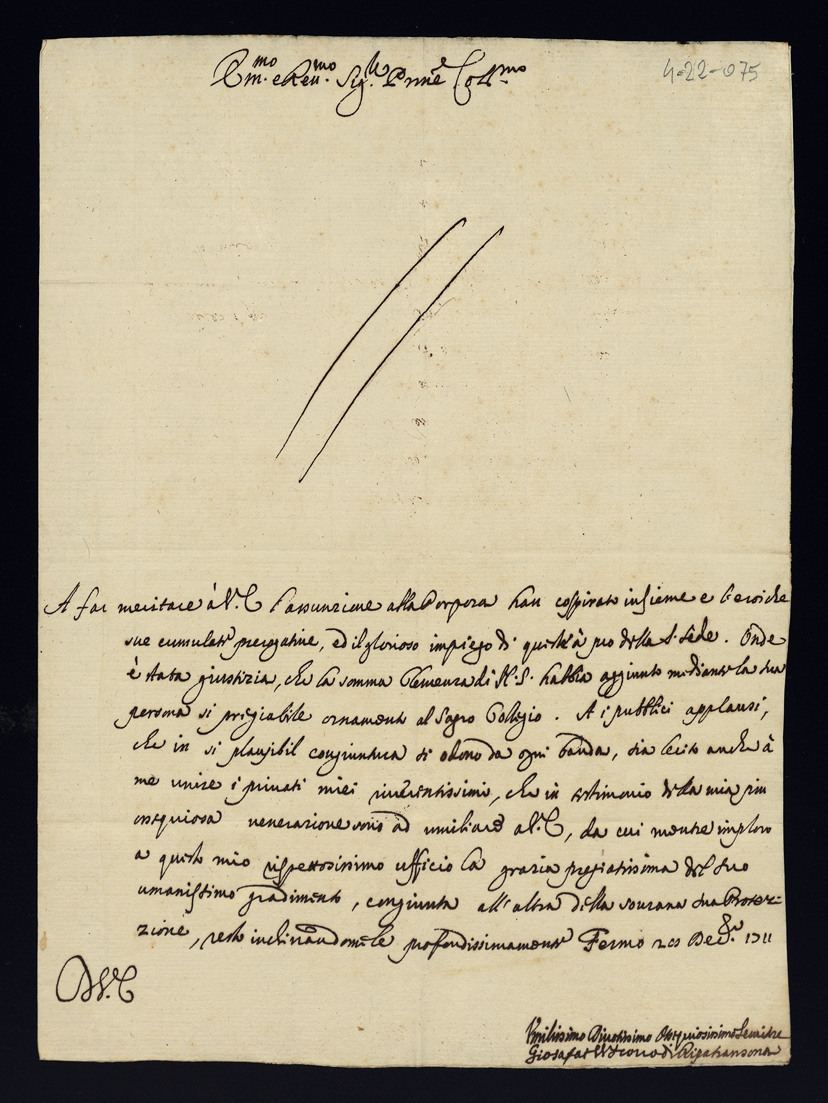 Em.mo e Reu.mo Sig.r Prne Col.mo
4-22-075
A far meritare à V. E. l'assunzione alla Porpora han cospirato insieme e l'eroiche
sue cumulate prerogatiue, ed il glorioso impiego di queste à pro della S. Sede. Onde
è stata giustizia, che la somma Clemenza di N. S. habbia aggiunto mediante la sua
persona si pregiabile ornamento al Sagro Collegio. A i pubblici applausi,
che in si plausibil congiuntura si odono da ogni banda, sia lecito anche à
me unire i priuati miei riuerentissimi, che in testimonio della mia più
ossequiosa venerazione sono ad umiliare a V. E, da cui mentre imploro
a questo mio rispettosissimo ufficio la grazia pregiatissima del suo
umanissimo gradimento, congiunta all'altra della sourana sua Prote=
zione, resto inchinandomele profondissimamente Fermo 20 Dec. 1711
D V. E
Vmilissimo Diuotissimo Ossequiosissimo Seruitre
Giosafat Vescouo di Ripatransona